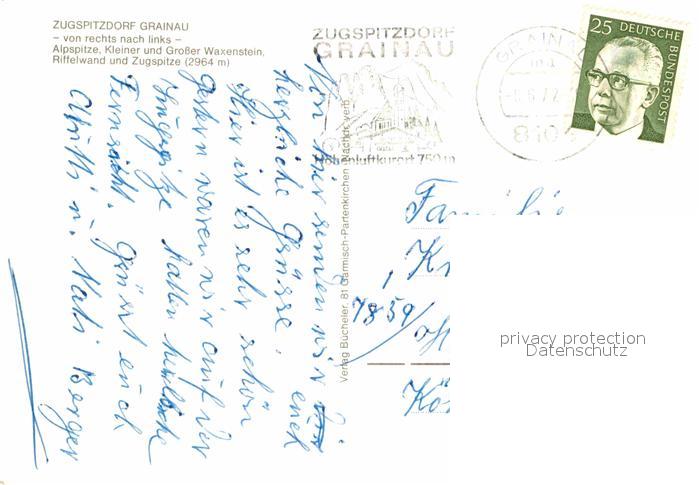 ZUGSPITZDORF GRAINAU
– von rechts nach links –
Alpspitze, Kleiner und Großer Waxenstein,
Riffelwand und Zugspitze (2964 m)
ZUGSPITZDORF
GRAINAU
Höhenluftkurort 750 m
GRAINAU
8104
25 DEUTSCHE BUNDESPOST
Von hier senden wir
euch
herzliche Grüsse.
Hier ist es sehr schön
gestern waren wir auf der
Zugspitze hatten herrliche
Fernsicht. Grüsst euch
u. Berger
Verlag Bücheler, 81 Garmisch-Partenkirchen Nachdr. verb.
Familie
7859
privacy protection
Datenschutz